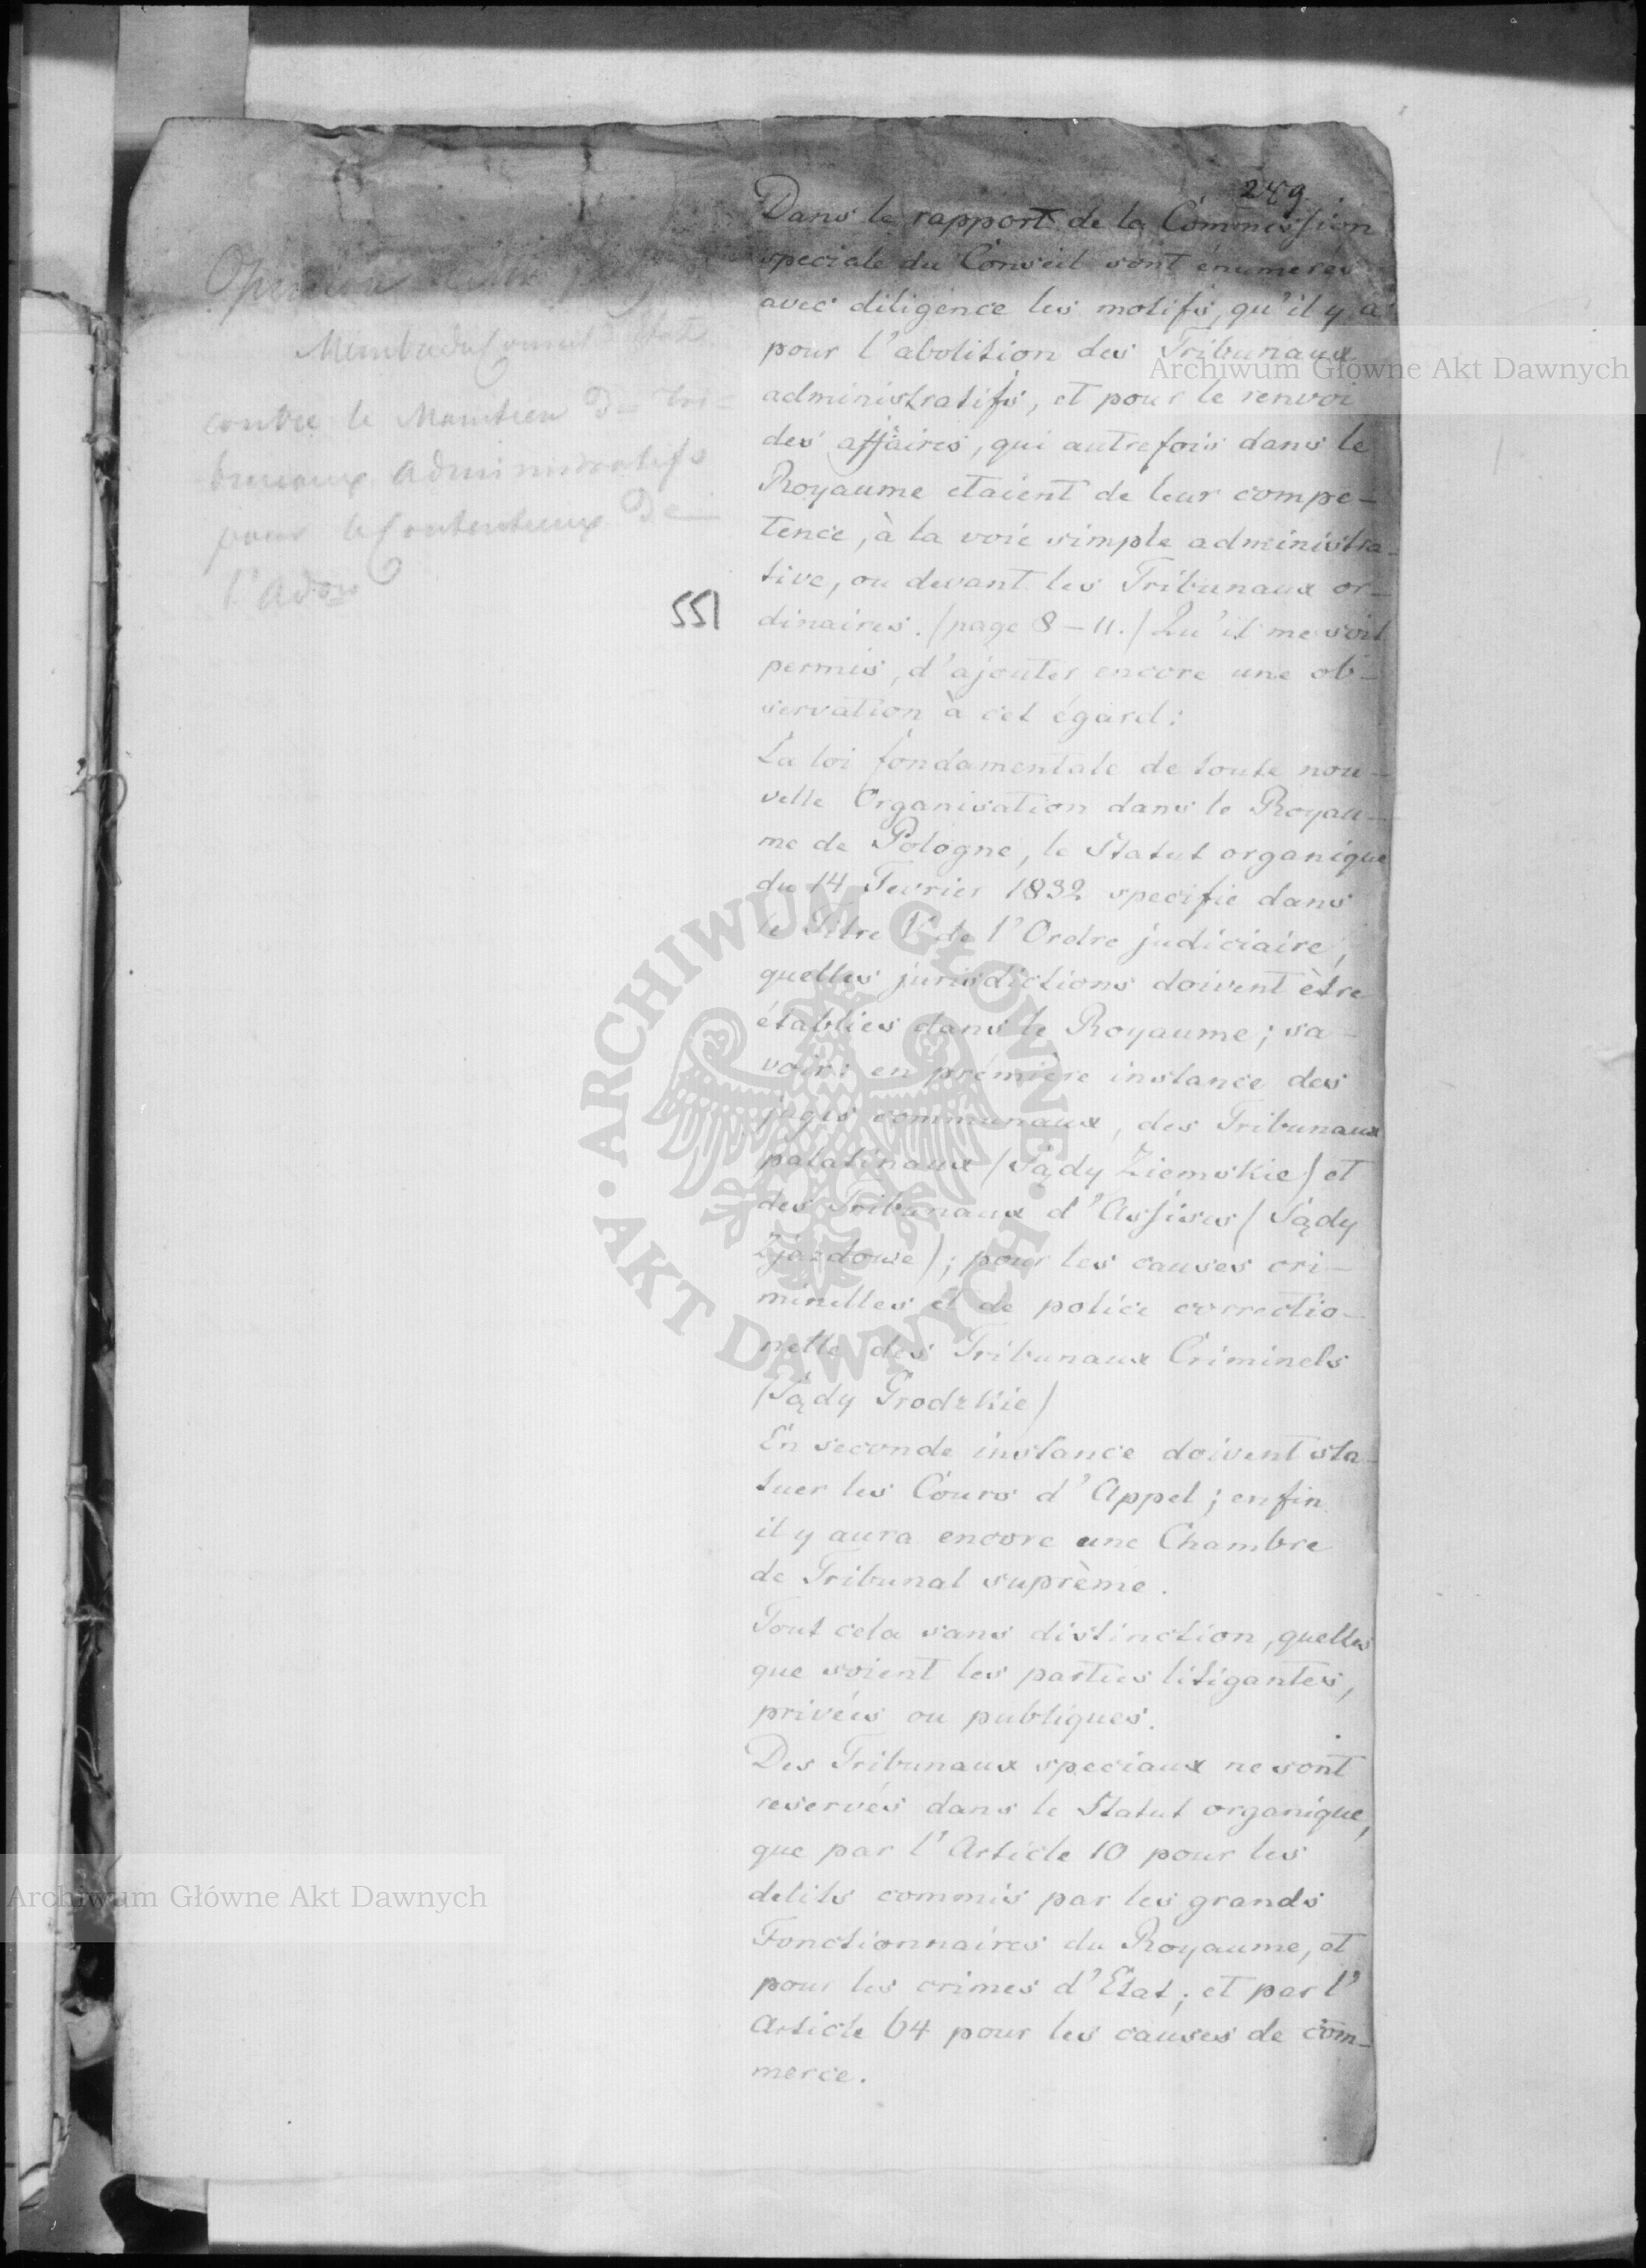 249
Dans le rapport de la Commission
speciale du Conseil sont énumerés
avec diligence les motifs, qu'il y a
pour l'abolition des Tribunaux
administratifs, et pour le renvoi
des affaires, qui autrefois dans le
Royaume etaient de leur compe-
tence, à la voie simple administra-
tive, ou devant les Tribunaux or-
dinaires. (page 8-11.) Qu'il me soit
permis, d'ajouter encore une ob-
servation à cet égard:
La loi fondamentale de toute nou-
velle Organisation dans le Royau-
me de Pologne, le Statut organique
du 14 Fevrier 1832 specifie dans
le Titre de l'Ordre judiciaire,
quelles jurisdictions doivent être
établies dans le Royaume; sa-
voir: en prémière instance des
juges communaux, des Tribunaux
palatinaux (Sądy Ziemskie) et
des Tribunaux d'Assises (Sądy
Zjazdowe); pour les causes cri-
minelles et de police correctio-
nelle des Tribunaux Criminels
(Sądy Grodzkie)
En seconde instance doivent sta-
tuer les Cours d'Appel; enfin
il y aura encore une Chambre
de Tribunal suprème.
Tout cela sans distinction, quelles
que soient les parties litigantes,
privées ou publiques.
Des Tribunaux speciaux ne sont
reservés dans le Statut organique,
que par l'Article 10 pour les
delits commis par les grands
Fonctionnaires du Royaume, et
pour les crimes d'Etat; et par l'
Article 64 pour les causes de com-
merce.
Opinion
Membre du Conseil d'Etat
contre le Maintien Des Tri-
bunaux Administratifs
pour le Contentieux De
l'Adon
551
Archiwum Główne Akt Dawnych
ARCHIWUM GŁÓWNE
AKT DAWNYCH
Archiwum Główne Akt Dawnych